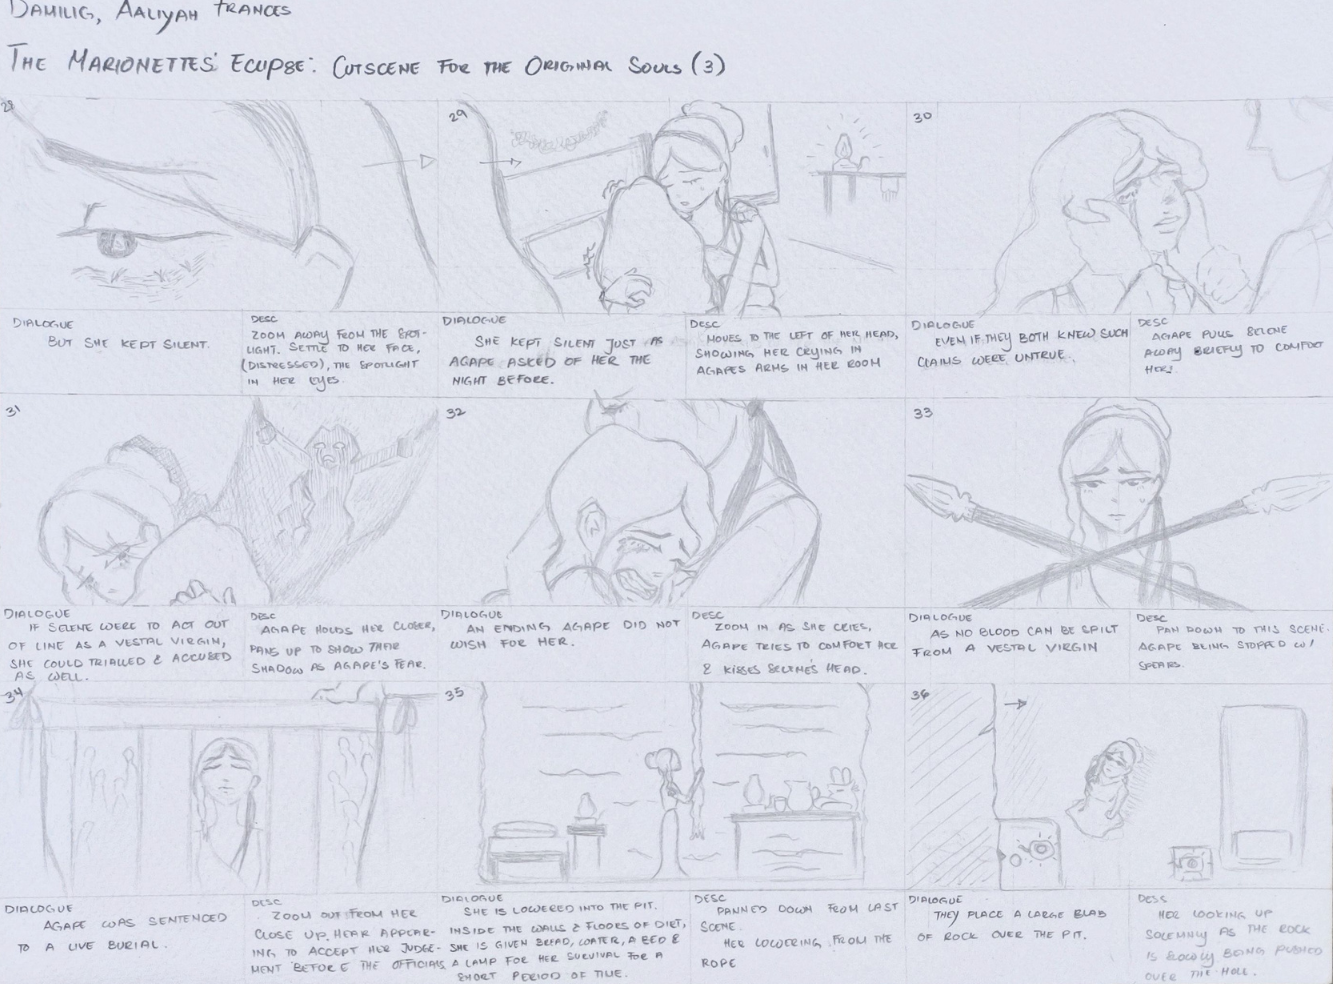 DAMILIG, AALIYAH FRANCES
THE MARIONETTES' ECLIPSE: CUTSCENE FOR THE ORIGINAL SOULS (3)
28
DIALOGUE
BUT SHE KEPT SILENT.
DESC
ZOOM AWAY FROM THE SPOT-
LIGHT. SETTLE TO HER FACE,
(DISTRESSED), THE SPOTLIGHT
IN HER EYES.
29
DIALOGUE
SHE KEPT SILENT JUST AS
AGAPE ASKED OF HER THE
NIGHT BEFORE.
DESC
MOVES TO THE LEFT OF HER HEAD,
SHOWING HER CRYING IN
AGAPES ARMS IN HER ROOM
30
DIALOGUE
EVEN IF THEY BOTH KNEW SUCH
CLAIMS WERE UNTRUE.
DESC
AGAPE PULLS SELENE
AWAY BRIEFLY TO COMFORT
HER.
31
DIALOGUE
IF SELENE WERE TO ACT OUT
OF LINE AS A VESTAL VIRGIN,
SHE COULD TRIALLED & ACCUSED
AS WELL.
DESC
AGAPE HOLDS HER CLOSER,
PANS UP TO SHOW THEIR
SHADOW AS AGAPE'S FEAR.
32
DIALOGUE
AN ENDING AGAPE DID NOT
WISH FOR HER.
DESC
ZOOM IN AS SHE CRIES,
AGAPE TRIES TO COMFORT HER
& KISSES SELENE'S HEAD.
33
DIALOGUE
AS NO BLOOD CAN BE SPILT
FROM A VESTAL VIRGIN
DESC
PAN DOWN TO THIS SCENE.
AGAPE BEING STOPPED W/
SPEARS.
34
DIALOGUE
AGAPE WAS SENTENCED
TO A LIVE BURIAL.
DESC
ZOOM OUT FROM HER
CLOSE UP. HEAR APPEAR-
ING TO ACCEPT HER JUDGE-
MENT BEFORE THE OFFICIALS
35
DIALOGUE
SHE IS LOWERED INTO THE PIT.
INSIDE THE WALLS & FLOORS OF DIRT,
SHE IS GIVEN BREAD, WATER, A BED &
A LAMP FOR HER SURVIVAL FOR A
SHORT PERIOD OF TIME.
DESC
PANNED DOWN FROM LAST
SCENE.
HER LOWERING FROM THE
ROPE
36
DIALOGUE
THEY PLACE A LARGE SLAB
OF ROCK OVER THE PIT.
DESC
HER LOOKING UP
SOLEMNLY AS THE ROCK
IS SLOWLY BEING PUSHED
OVER THE HOLE.